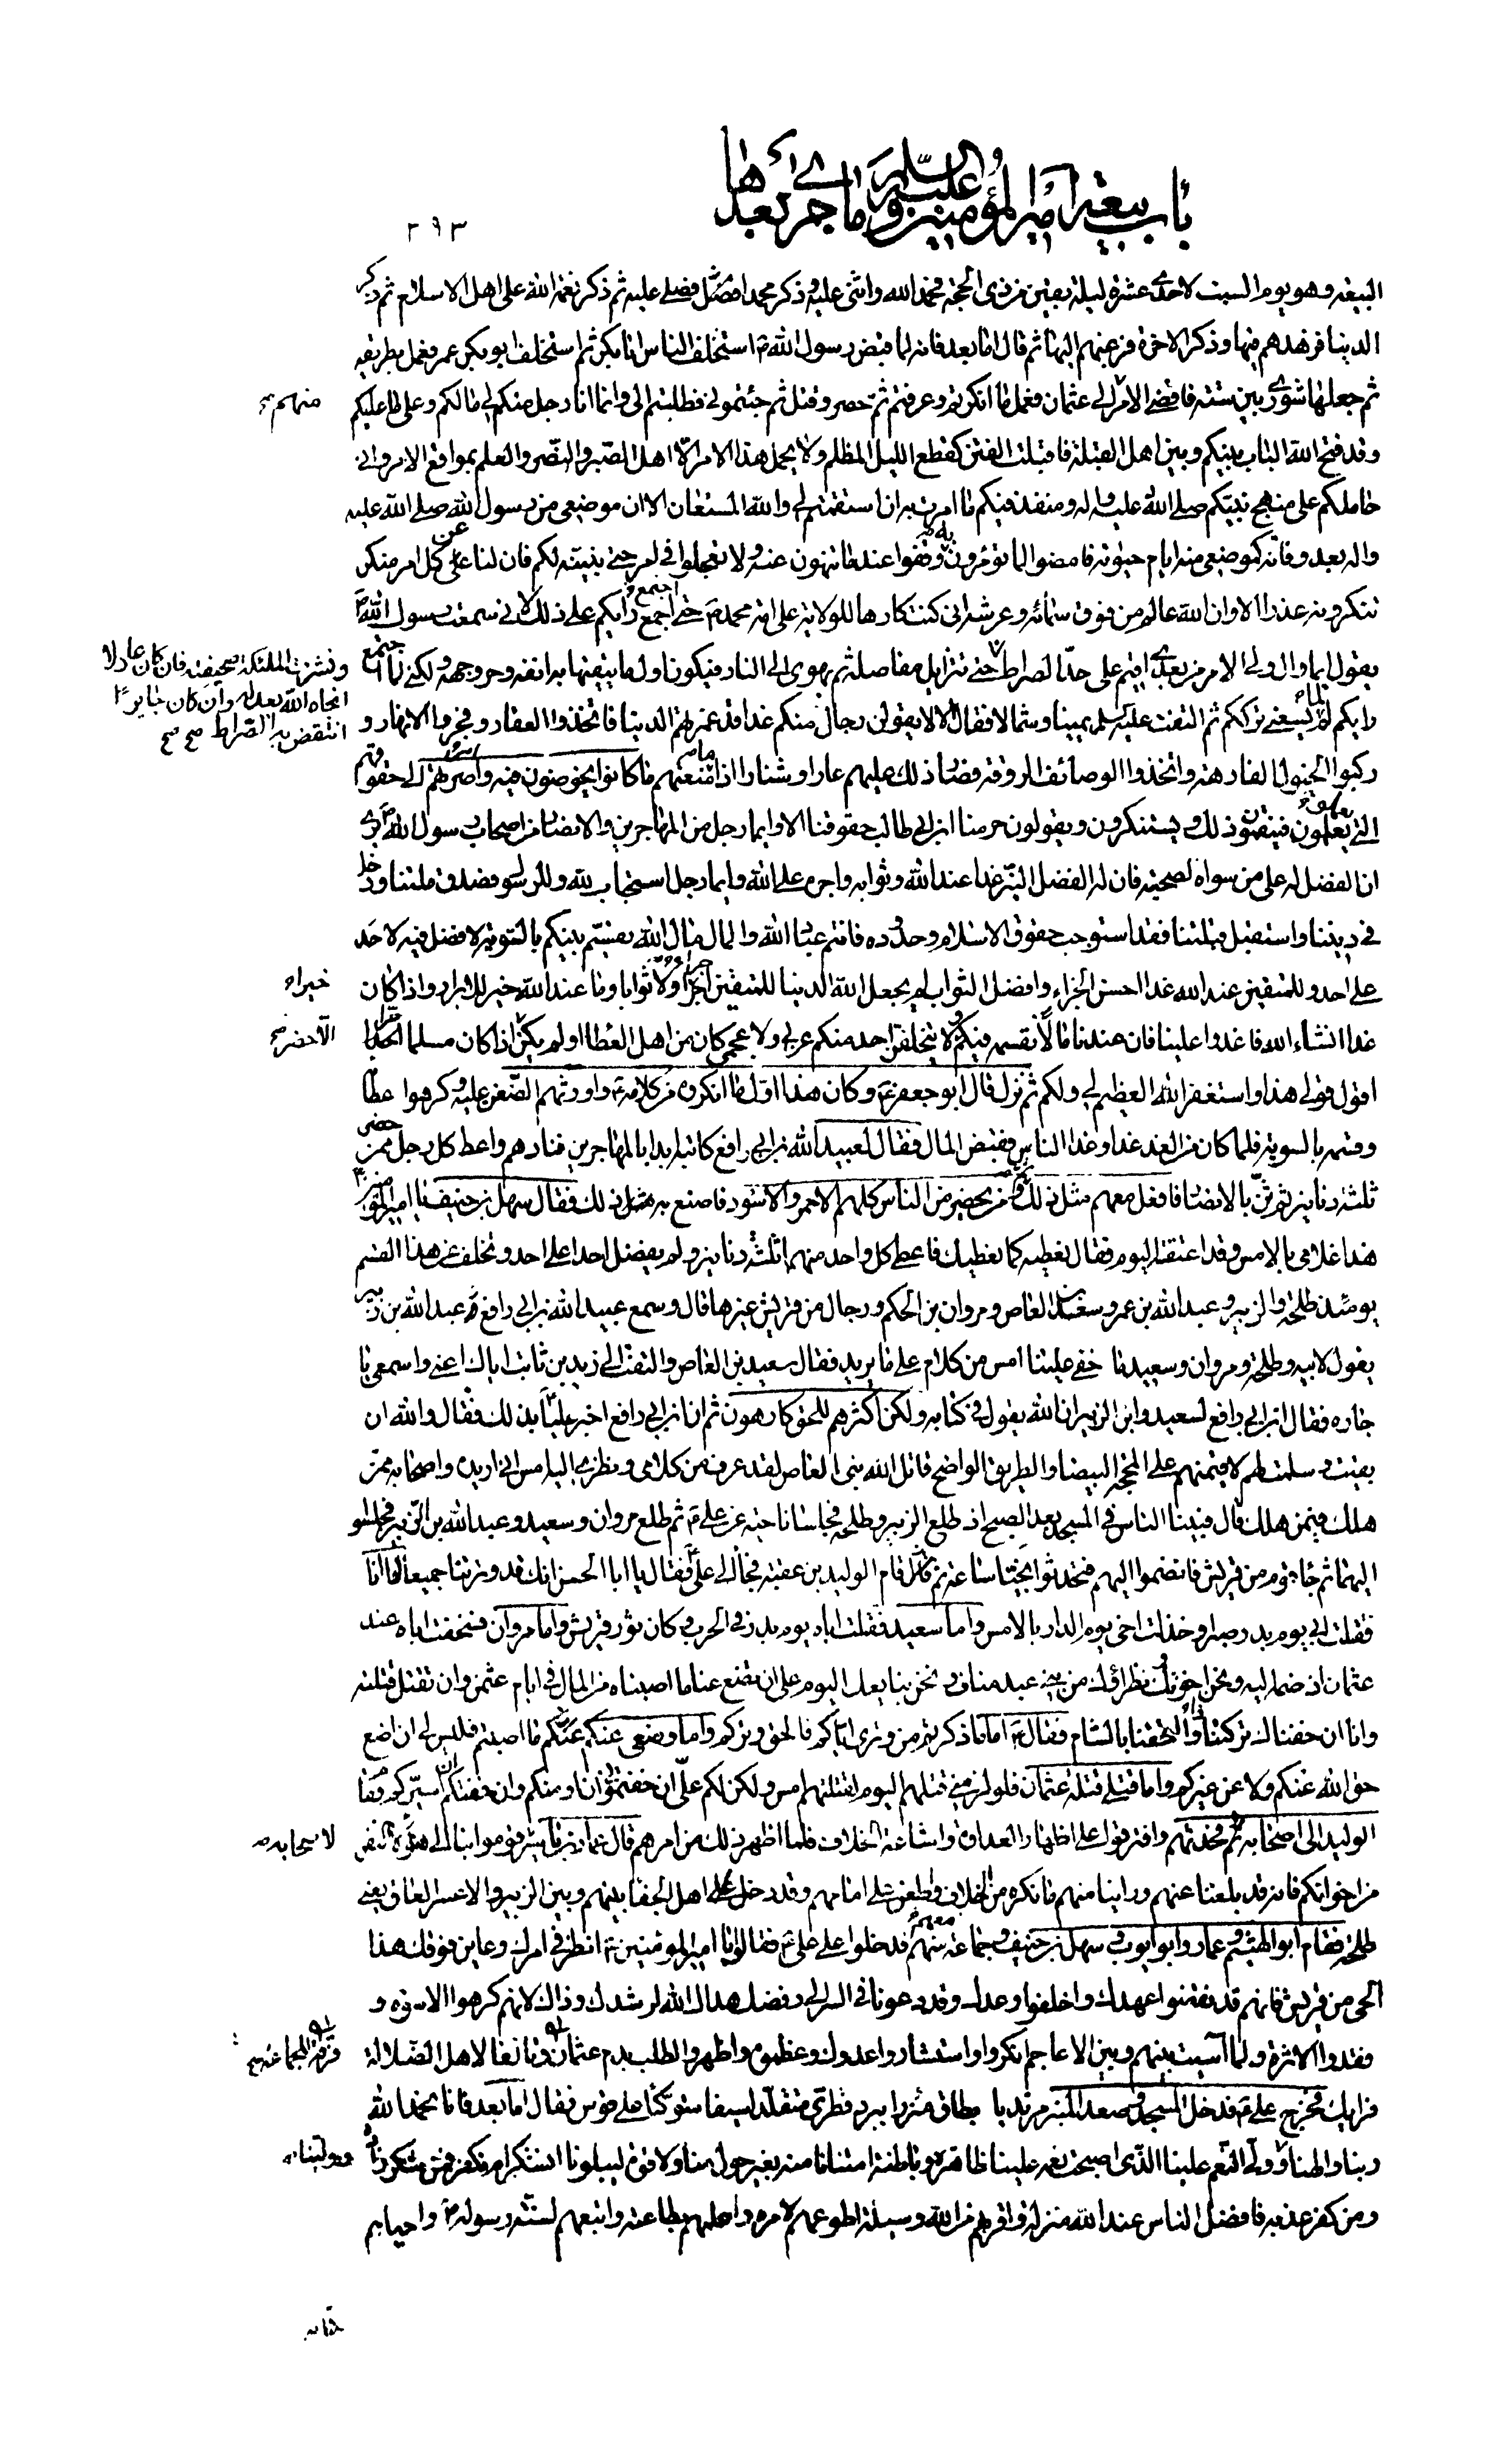 باب بيعة أمير المؤمنين عليه السلام وما جرى بعدها
٣٩٣
البيعة وهو يوم السبت لاحدى عشرة ليلة بقين من ذى الحجة فحمد الله واثنى عليه وذكر محمدا فصلى عليه ثم ذكر نعمة الله على اهل الاسلام ثم ذكر
الدنيا فزهدهم فيها وذكر الاخرة فرغبهم اليها ثم قال اما بعد فانه لما قبض رسول الله ص استخلف الناس ابا بكر ثم استخلف ابو بكر عمر فعمل بطريقه
ثم جعلها شورى بين ستة فافضى الامر الى عثمان فعمل ما انكرتم وعرفتم ثم حصر وقتل ثم جئتمونى فطلبتم الى وانما انا رجل منكم لى ما لكم وعلى ما عليكم
منهم صح
وقد فتح الله الباب بينكم وبين اهل القبلة فاقبلت الفتن كقطع الليل المظلم ولا يحمل هذا الامر الا اهل الصبر والبصر والعلم بمواقع الامر وانى
حاملكم على منهج نبيكم صلى الله عليه واله ومنفذ فيكم ما امرت به ان استقمتم لى والله المستعان الا ان موضعى من رسول الله صلى الله عليه
واله بعد وفاته كموضعى منه ايام حيوته فامضوا لما تؤمرون به وقفوا عند ما تنهون عنه ولا تعجلوا فى امر حتى نبينه لكم فان لنا عن كل امر منكر
تنكرونه عذرا الا وان الله عالم من فوق سمائه وعرشه انى كنت كارها للولاية على امة محمد ص حتى اجتمع رايكم على ذلك لانى سمعت رسول الله ص
يقول ايما وال ولى الامر من بعدى اقيم على حد الصراط حتى تتزايل مفاصله ثم يهوى الى النار فيكون اول ما يتقيها به انفه وحر وجهه ولكنى لما اجتمع
ونشرت الملئكة صحيفته فان كان عادلا
انجاه الله بعدله وان كان جايرا
انتقض به الصراط صح صح
رايكم لم يسعنى ترككم ثم التفت عليه السلم يمينا وشمالا فقال الا لا يقولن رجال منكم غدا قد غمرتهم الدنيا فاتخذوا العقار وفجروا الانهار و
ركبوا الخيول الفارهة واتخذوا الوصائف الروقة فصار ذلك عليهم عارا وشنارا اذا ما منعتهم ما كانوا يخوضون فيه واصرتهم الى حقوقهم
التى يعلمون فينقمون ذلك ويستنكرون ويقولون حرمنا ابن ابى طالب حقوقنا الا وايما رجل من المهاجرين والانصار من اصحاب رسول الله ص يرى
ان الفضل له على من سواه لصحبته فان له الفضل النير غدا عند الله وثوابه واجره على الله وايما رجل استجاب لله وللرسول فصدق ملتنا ودخل
فى ديننا واستقبل قبلتنا فقد استوجب حقوق الاسلام وحدوده فانتم عباد الله والمال مال الله يقسم بينكم بالسوية لا فضل فيه لاحد
على احد وللمتقين عند الله غدا احسن الجزاء وافضل الثواب لم يجعل الله الدنيا للمتقين اجرا ولا ثوابا وما عند الله خير للابرار واذا كان
خيرا ه
غدا انشاء الله فاغدوا علينا فان عندنا مالا نقسمه فيكم ولا يتخلفن احد منكم عربى ولا عجمى كان من اهل العطا او لم يكن اذا كان مسلما حرا
الا حضر صح
اقول قولى هذا واستغفر الله العظيم لى ولكم ثم نزل قال ابو جعفر ع وكان هذا اول ما انكروه من كلامه ع واورثهم الضغن عليه وكرهوا عطاءه
وقسمه بالسوية فلما كان من الغد غدا وغدا الناس فقبض المال فقال لعبيد الله بن ابى رافع كاتبه ابدا بالمهاجرين فنادهم واعط كل رجل ممن حضر
ثلثة دنانير ثم ثن بالانصار فافعل معهم مثل ذلك ومن يحضر من الناس كلهم الاحمر والاسود فاصنع به مثل ذلك فقال سهل بن حنيف يا امير المؤمنين
هذا غلامى بالامس وقد اعتقته اليوم فقال نعطيه كما نعطيك فاعطى كل واحد منهما ثلثة دنانير ولم يفضل احدا على احد وتخلف عن هذا القسم
يومئذ طلحة والزبير وعبد الله بن عمر وسعيد بن العاص ومروان بن الحكم ورجال من قريش وغيرها قال وسمع عبيد الله بن ابى رافع عبد الله بن زبير
يقول لابيه وطلحة ومروان وسعيد ما خفى علينا امس من كلام على ما يريد فقال سعيد بن العاص والتفت الى زيد بن ثابت اياك اعنى واسمعى يا
جاره فقال ابن ابى رافع لسعيد وابن الزبير ان الله يقول فى كتابه ولكن اكثرهم للحق كارهون ثم ان ابن ابى رافع اخبر عليا بذلك فقال والله ان
بقيت وسلمت لهم لاقيمنهم على المحجة البيضاء والطريق الواضح قاتل الله بنى العاص لقد عرف من كلامى ونظرى اليه امس انى اريده واصحابه ممن
هلك فيمن هلك قال فبينا الناس فى المسجد بعد الصبح اذ طلع الزبير وطلحة فجلسا ناحية عن على ع ثم طلع مروان وسعيد وعبد الله بن الزبير فجلسوا
اليهما ثم جاء قوم من قريش فانضموا اليهم فتحدثوا نجيا ساعة ثم قام الوليد بن عقبة فجاء الى على ع فقال يا ابا الحسن انك قد وترتنا جميعا اما انا
فقتلت ابى يوم بدر صبرا وخذلت اخى يوم الدار بالامس واما سعيد فقتلت اباه يوم بدر فى الحرب وكان ثور قريش واما مروان فسخفت اباه عند
عثمان اذ ضمه اليه ونحن اخوتك ونظراؤك من بنى عبد مناف ونحن نبايعك اليوم على ان تضع عنا ما اصبناه من المال فى ايام عثمن وان تقتل قتلته
وانا ان خفناك تركناك والتحقنا بالشام فقال ع اما ما ذكرتم من وترى اياكم فالحق وتركم واما وضعى عنكم ما اصبتم فليس لى ان اضع
حق الله عنكم ولا عن غيركم واما قتلى قتلة عثمان فلو لزمنى قتلهم اليوم لقتلتهم امس ولكن لكم على ان خفتمونى ان اومنكم وان خفتكم ان اسيركم فقام
الوليد الى اصحابه فحدثهم وافترقوا على اظهار العداوة واشاعة الخلاف فلما اظهر ذلك من امرهم قال عمار بن ياسر قوموا بنا الى هؤلاء النفر
لاصحابه صح
من اخوانكم فانه قد بلغنا عنهم وراينا منهم ما نكره من الخلاف والطعن على امامهم وقد دخل اهل الجفا بينهم وبين الزبير والاعسر العاق يعنى
طلحة فقام ابو الهيثم وعمار وابو ايوب وسهل بن حنيف وجماعة معهم فدخلوا على على ع فقالوا يا امير المؤمنين انظر فى امرك وعاين قومك هذا
الحى من قريش فانهم قد نقضوا عهدك واخلفوا وعدك وقد دعونا فى السر الى رفضك هداك الله لرشدك وذاك لانهم كرهوا الاسوة و
فقدوا الاثرة ولما آسيت بينهم وبين الاعاجم انكروا واستشاروا عدوك وعظموه واظهروا الطلب بدم عثمان وتالفا لاهل الضلالة
فرقة للجماعة صح
فرايك فخرج على ع فدخل المسجد وصعد المنبر مرتديا بطاق مئتزرا ببرد قطرى متقلدا سيفا متوكئا على قوس فقال اما بعد فانا نحمد الله
ربنا والهنا وولى النعم علينا الذى اصبحت نعمه علينا ظاهرة وباطنة امتنانا منه بغير حول منا ولا قوة ليبلونا انشكر ام نكفر فمن شكر زاده
وولينا
ومن كفر عذبه فافضل الناس عند الله منزلة واقربهم من الله وسيلة اطوعهم لامره واعملهم بطاعته واتبعهم لسنة رسوله ص واحياهم